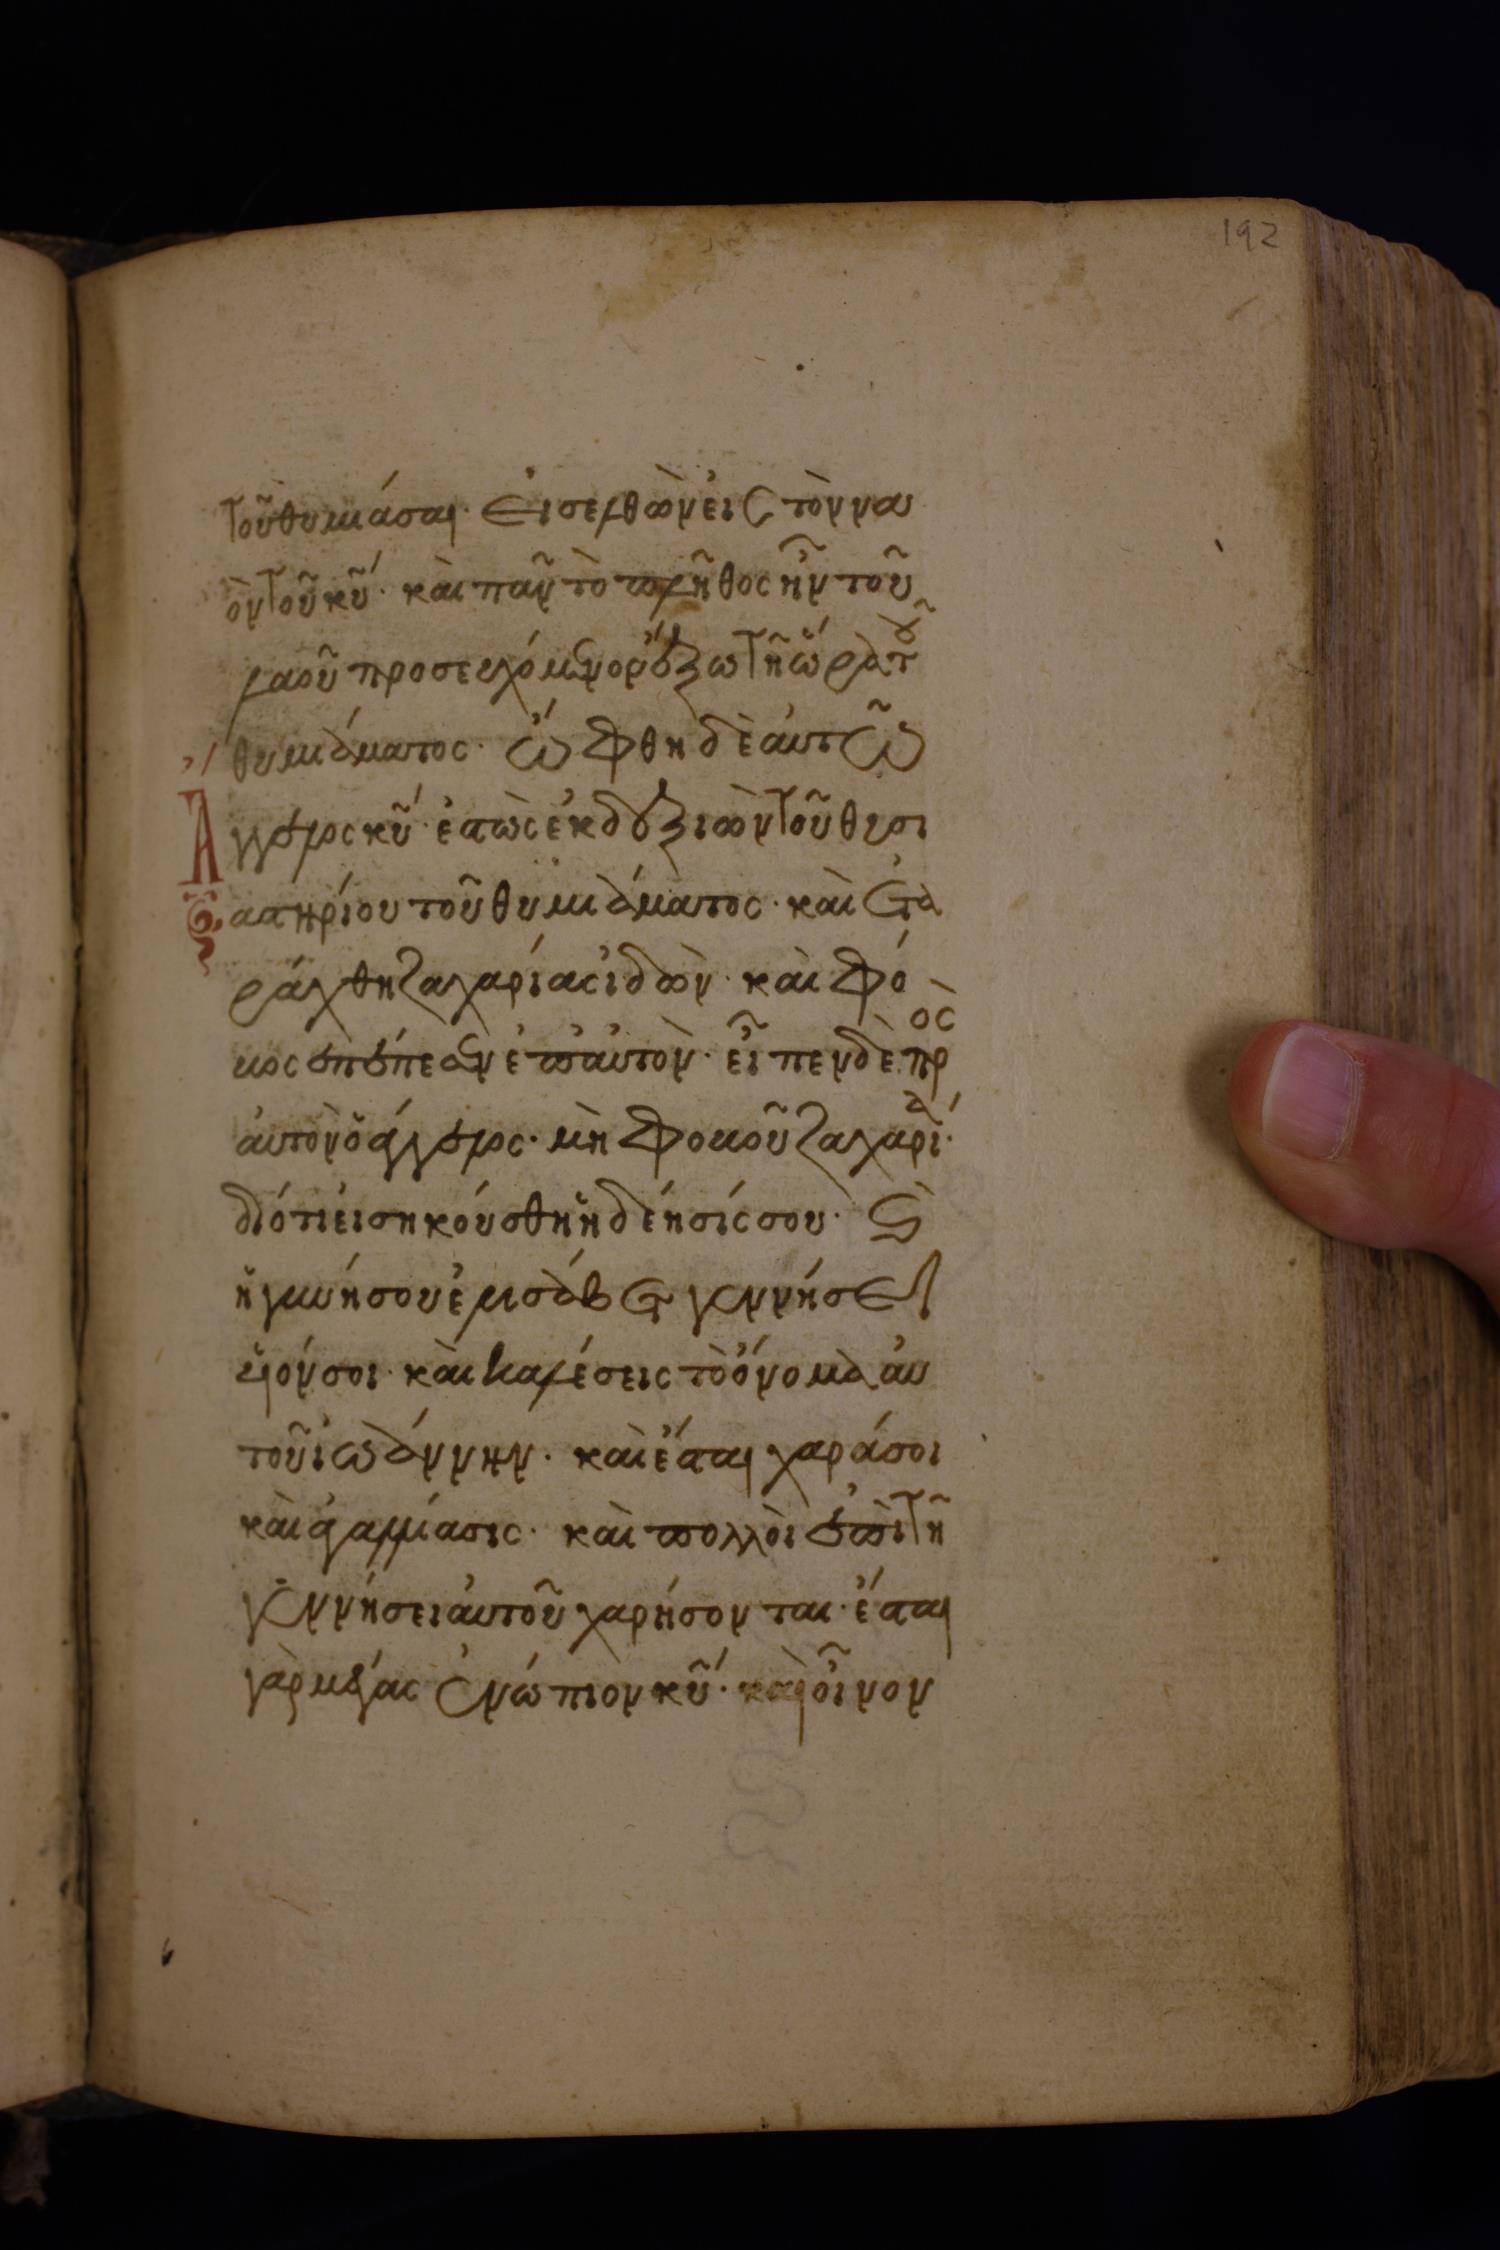 192
τοῦ θυμιάσαι· εἰσελθὼν εἰς τὸν να
ὸν τοῦ κῦ· καὶ πᾶν τὸ πλῆθος ἦν τοῦ
λαοῦ προσευχόμενον ἔξω τῆ ὥρα τοῦ
θυμιάματος· ὤφθη δὲ αὐτῶ
Ἄγγελος κῦ· ἑστὼς ἐκ δεξιῶν τοῦ θυσι
αστηρίου τοῦ θυμιάματος· καὶ ἐτα
ράχθη ζαχαρίας ἰδὼν· καὶ φό
βος ἐπέπεσεν ἐπ αὐτὸν· εἶπεν δὲ πρὸς
αὐτὸν ὁ ἄγγελος· μὴ φοβοῦ ζαχαρία·
διότι εἰσηκούσθη ἡ δέησίς σου· καὶ
ἡ γυνή σου ἐλισάβετ γεννήσει
υἱόν σοι· καὶ καλέσεις τὸ ὄνομα αὐ
τοῦ ἰωάννην· καὶ ἔσται χαρά σοι
καὶ ἀγαλλίασις· καὶ πολλοὶ ἐπὶ τῆ
γεννήσει αὐτοῦ χαρήσονται· ἔσται
γὰρ μέγας ἐνώπιον κῦ· καὶ οἶνον